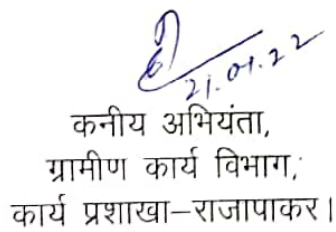 21.01.22
कनीय अभियंता,
ग्रामीण कार्य विभाग,
कार्य प्रशाखा–राजापाकर।